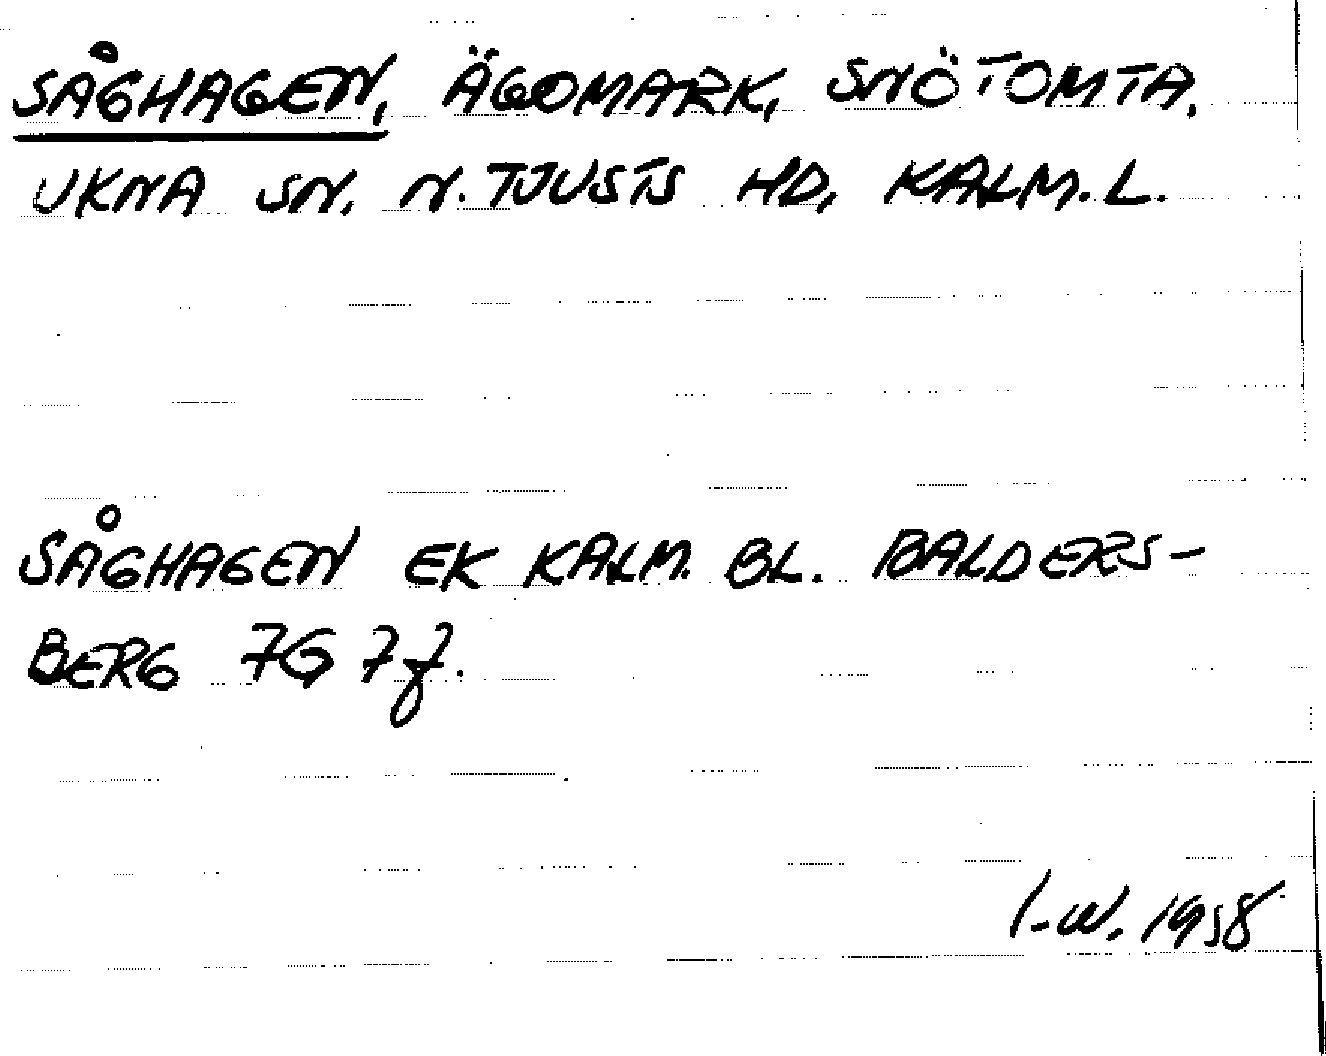 SÅGHAGEN, ÄGOMARK, SNÖTOMTA,
UKNA SN. N. TJUSTS HD, KALM. L.
SÅGHAGEN EK KALM. BL. BALDERS-
BERG 7G 7f.
I-W. 1958